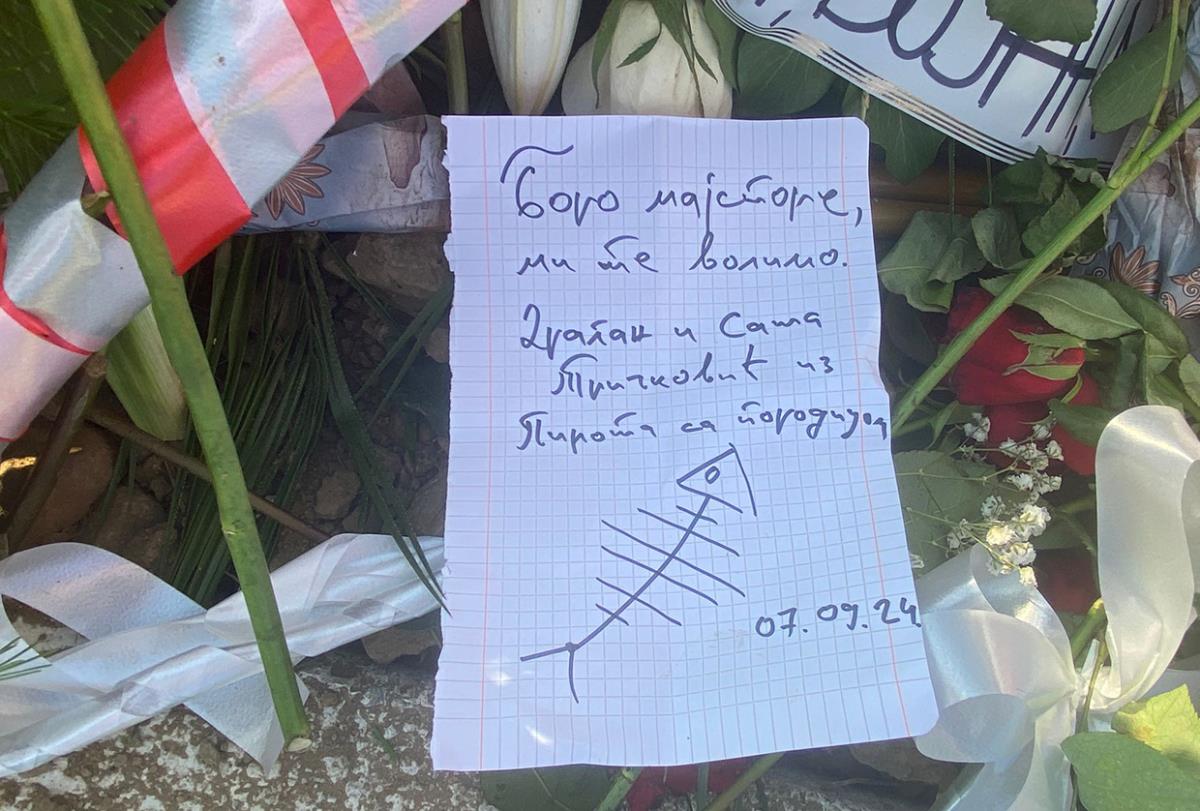 Боро мајсторе,
ми те волимо.
Драган и Саша
Тричковић из
Пирота са породицом
07.09.24.